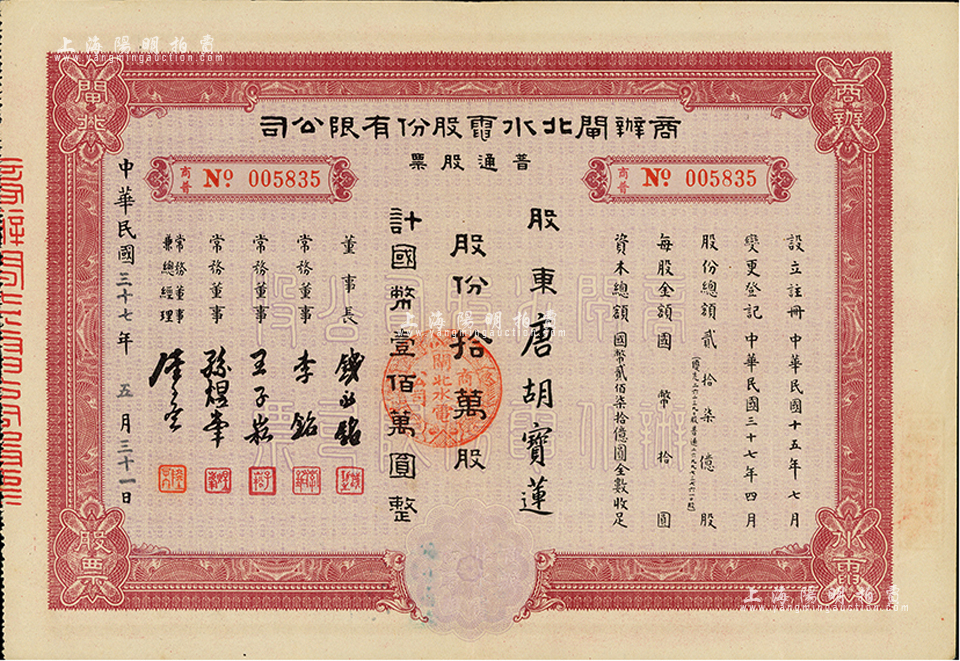 上海陽明拍賣
www.yangmingauction.com
商辦
閘北
水電
股票
商辦閘北水電股份有限公司
普通股票
商普 No 005835
商普 No 005835
設立註冊 中華民國十五年七月
變更登記 中華民國三十七年四月
股份總額貳拾柒億股
每股金額國幣拾圓
資本總額國幣貳佰柒拾億圓全數收足
股東唐胡寶蓮
股份拾萬股
計國幣壹佰萬圓整
董事長
常務董事 李銘
常務董事 王子崧
常務董事 孫煜峯
常務董事兼總經理
中華民國三十七年 五月三十一日
商辦閘北水電股份有限公司股票
上海陽明拍賣
www.yangmingauction.com
上海陽明拍賣
www.yangmingauction.com